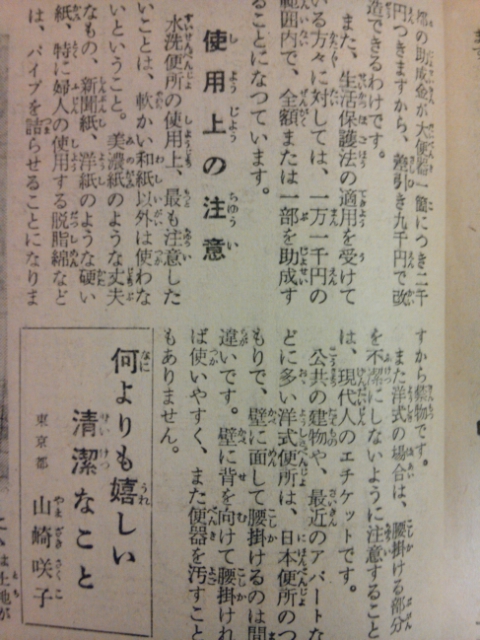 都の助成金が大便器一箇につき二千
円つきますから、差引き九千円で改
造できるわけです。
また、生活保護法の適用を受けて
いる方々に対しては、一万一千円の
範囲内で、全額または一部を助成す
ることになつています。
使用上の注意
水洗便所の使用上、最も注意した
いことは、軟かい和紙以外は使わな
いということ。美濃紙のような丈夫
なもの、新聞紙、洋紙のような硬い
紙、特に婦人の使用する脱脂綿など
は、パイプを詰らせることになりま
すから禁物です。
また洋式の場合は、腰掛ける部分
を不潔にしないように注意すること
は、現代人のエチケットです。
公共の建物や、最近のアパートな
どに多い洋式便所は、日本便所のつ
もりで、壁に面して腰掛けるのは間
違いです。壁に背を向けて腰掛けれ
ば使いやすく、また便器を汚すこと
もありません。
何よりも嬉しい
清潔なこと
東京都 山崎咲子
は土地が